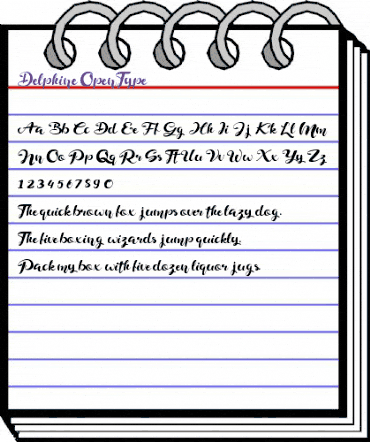 Delphine OpenType
Aa Bb Cc Dd Ee Ff Gg Hh Ii Jj Kk Ll Mm
Nn Oo Pp Qq Rr Ss Tt Uu Vv Ww Xx Yy Zz
1 2 3 4 5 6 7 8 9 0
The quick brown fox jumps over the lazy dog.
The five boxing wizards jump quickly.
Pack my box with five dozen liquor jugs.